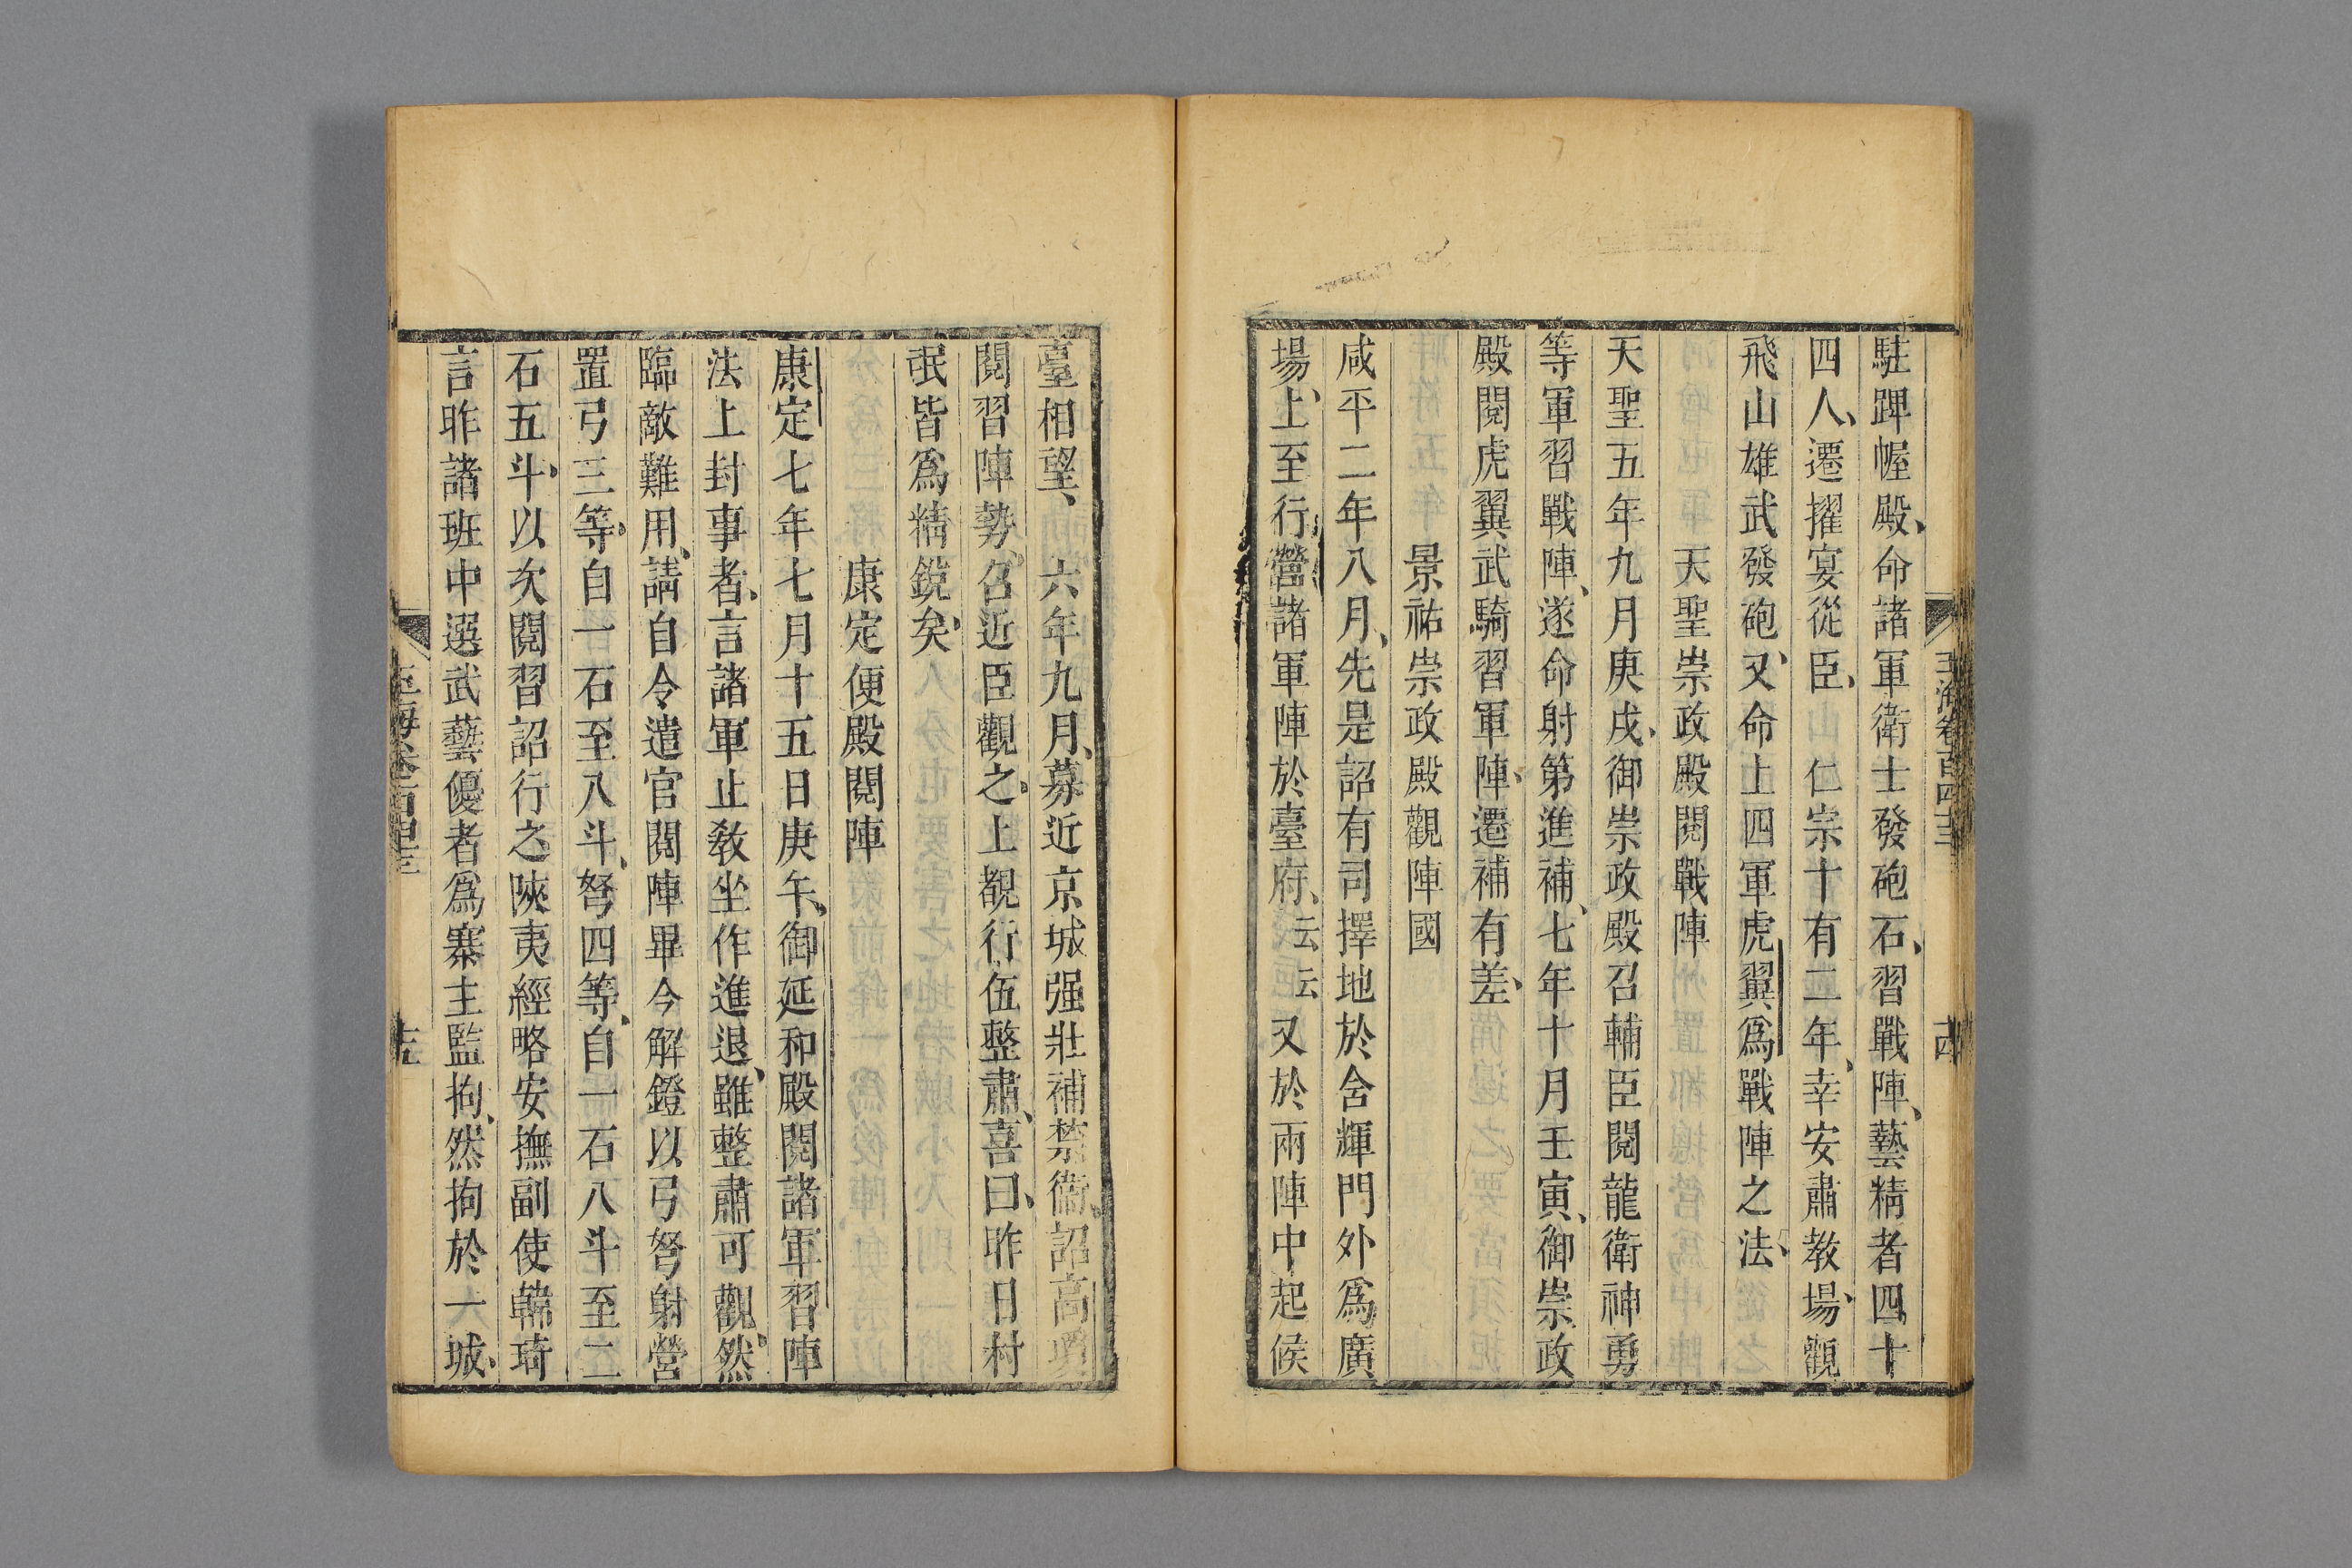 玉海卷百四十三 十四
駐蹕幄殿命諸軍衛士發砲石習戰陣藝精者四十
四人遷擢宴從臣 仁宗十有二年幸安肅教場觀
飛山雄武發砲又命上四軍虎翼爲戰陣之法
天聖崇政殿閱戰陣
天聖五年九月庚戌御崇政殿召輔臣閱龍衛神勇
等軍習戰陣遂命射第進補七年十月壬寅御崇政
殿閱虎翼武騎習軍陣遷補有差
景祐崇政殿觀陣國
咸平二年八月先是詔有司擇地於含輝門外爲廣
場上至行營諸軍陣於臺府云云又於兩陣中起候
臺相望 六年九月募近京城强壯補禁衛詔高瓊
閱習陣勢召近臣觀之上覩行伍整肅喜曰昨日村
氓皆爲精銳矣
康定便殿閱陣
康定七年七月十五日庚午御延和殿閱諸軍習陣
法上封事者言諸軍止敎坐作進退雖整肅可觀然
臨敵難用請自令遣官閱陣畢今解鐙以弓弩射營
置弓三等自一石至八斗弩四等自一石八斗至二
石五斗以次閱習詔行之陝夷經略安撫副使韓琦
言昨諸班中選武藝優者爲寨主監拘然拘於一城
玉海卷百四十三